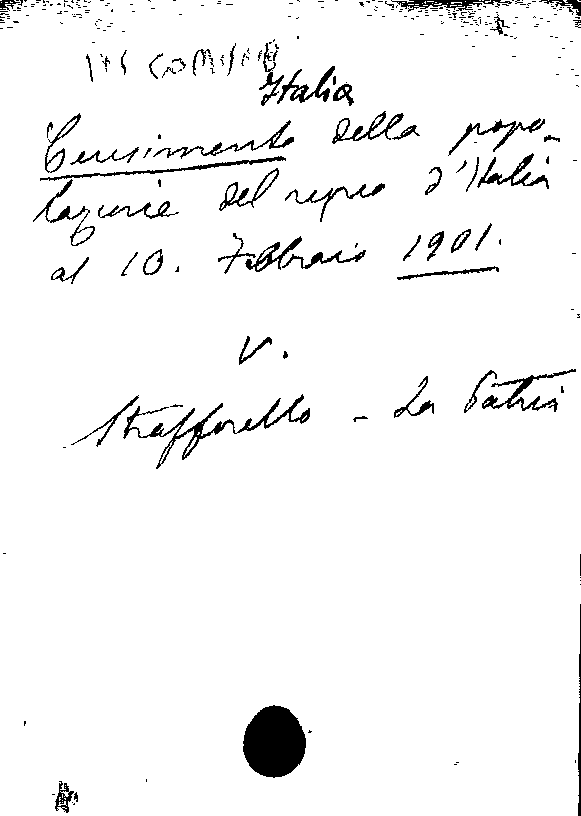 Italia
Censimento della popo-
lazione del regno d'Italia
al 10. Febbraio 1901.
V.
Strafforello - La Patria